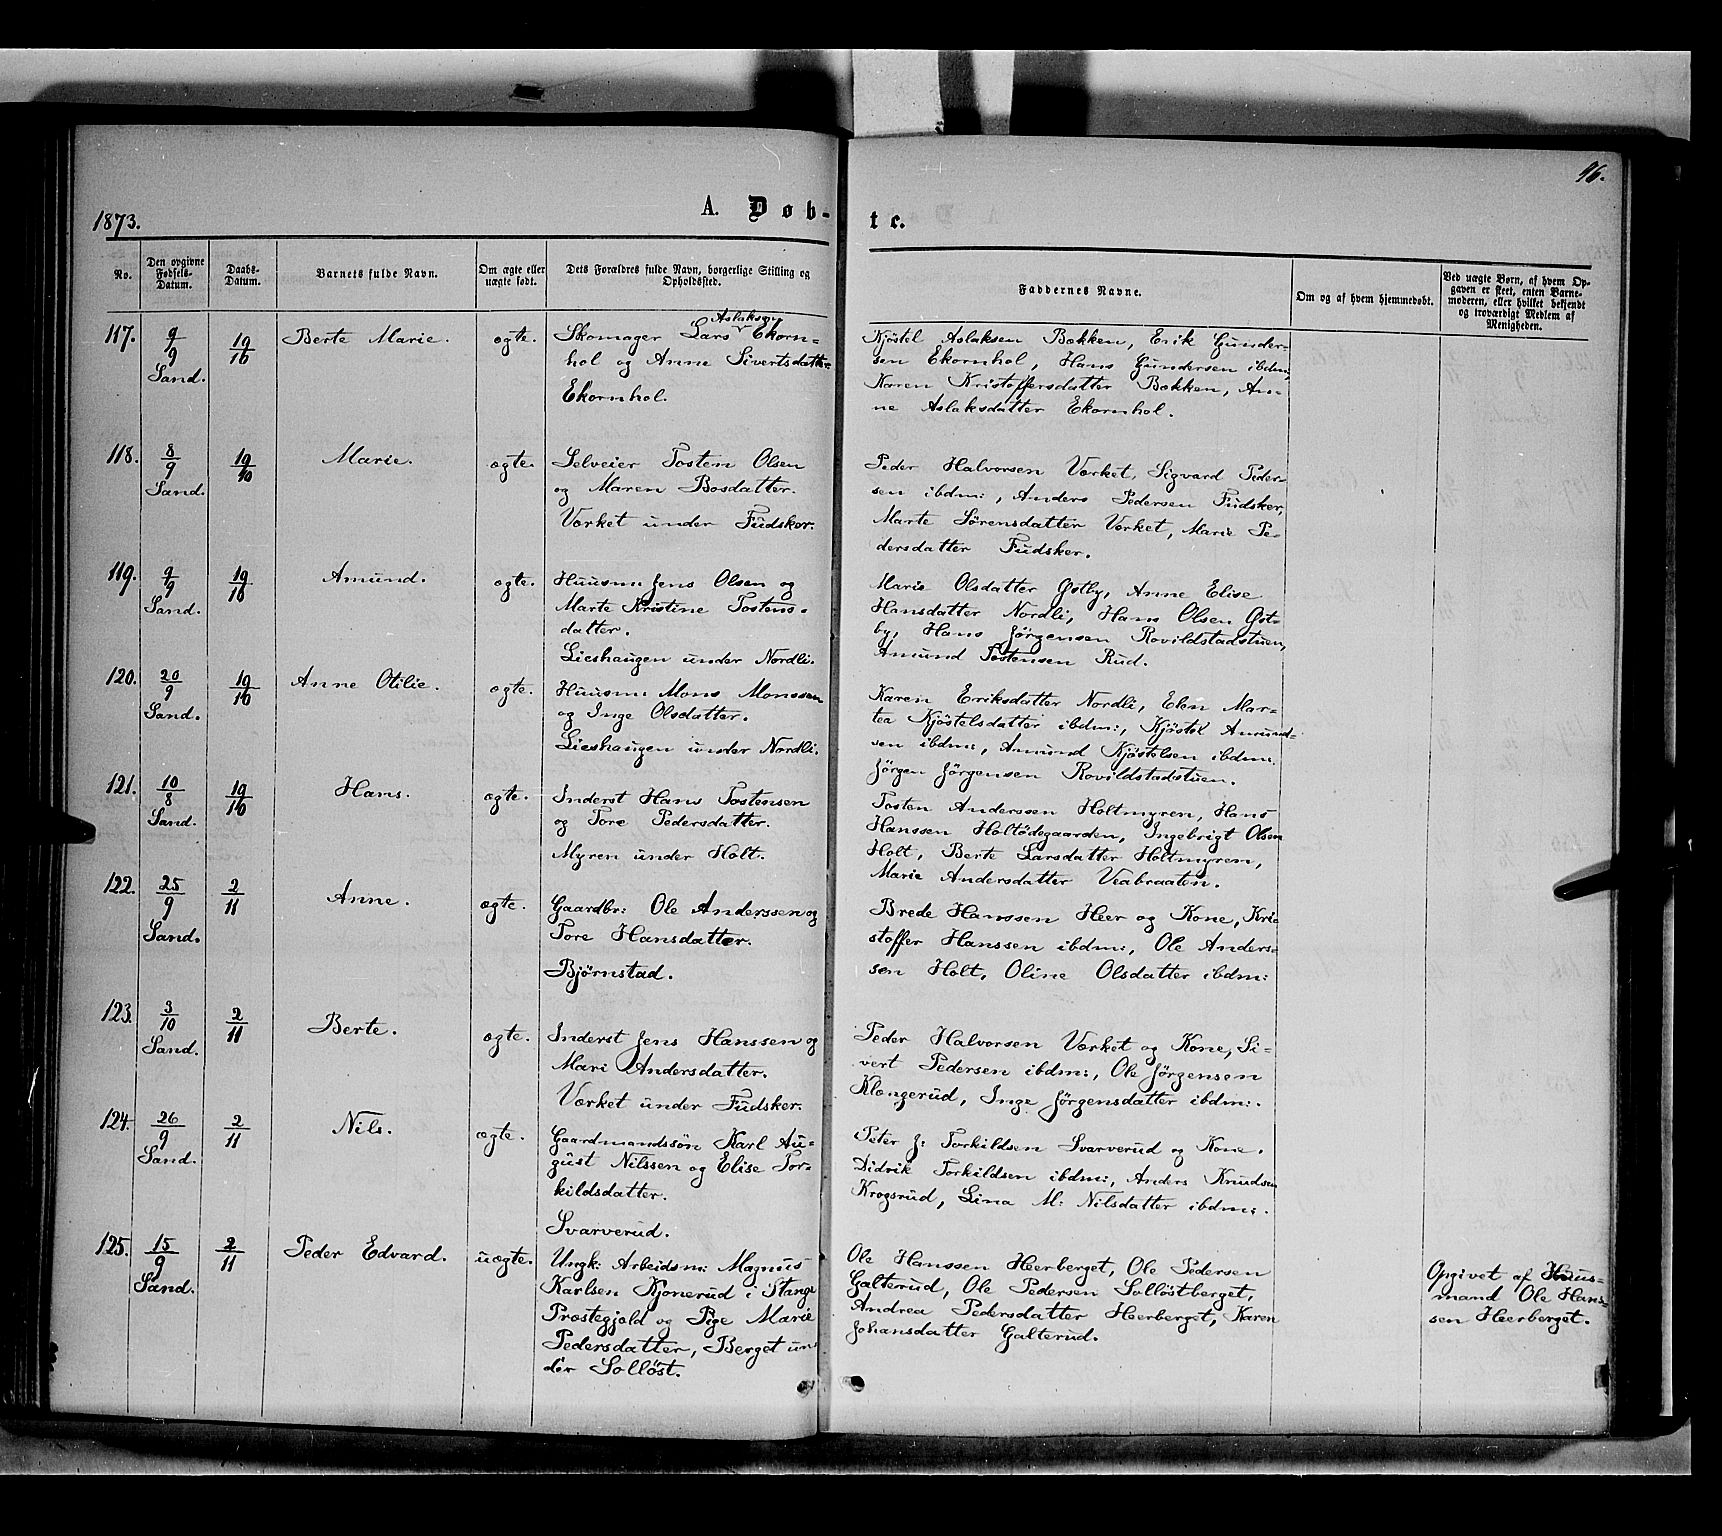 96.
1873.
A. Døb-
te.
No.
Den opgivne
Fødsels-
Datum.
Daabs-
Datum.
Barnets fulde Navn.
Om ægte eller
uægte født.
Dets Forældres fulde Navn, borgerlige Stilling og
Opholdssted.
Faddernes Navne.
Om og af hvem hjemmedøbt.
Ved uægte Børn, af hvem Op-
gaven er skeet, enten Barne-
moderen, eller hvilket bekjendt
og troværdigt Medlem af
Menigheden.
117.
9/9
Sand.
19/10
Berte Marie.
ægte.
Aslaksen
Skomager Lars Ekorn-
hol og Anne Sivertsdatter
Ekornhol.
Kjøstel Aslaksen Bakken, Erik Gunder-
sen Ekornhol, Hans Gundersen ibdm,
Karen Kristoffersdatter Bakken, An-
ne Aslaksdatter Ekornhol.
118.
8/9
Sand.
19/10
Marie.
ægte.
Selveier Tosten Olsen
og Maren Bosdatter.
Værket under Fudsker.
Peder Halvorsen Værket, Sigvard Peder-
sen ibdm:, Anders Pedersen Fudsker,
Marte Sørensdatter Værket, Marie Pe-
dersdatter Fudsker.
119.
9/9
Sand.
19/10
Amund.
ægte.
Huusm: Jens Olsen og
Marte Kristine Tostens-
datter.
Lieshaugen under Nordli.
Marie Olsdatter Østby, Anne Elise
Hansdatter Nordli, Hans Olsen Øst-
by, Hans Jørgensen Rovildstadstuen,
Amund Tostensen Rud.
120.
20/9
Sand.
19/10
Anne Otilie.
ægte.
Huusm: Mons Monssen
og Inge Olsdatter.
Lieshaugen under Nordli.
Karen Eriksdatter Nordli, Elen Mar-
tea Kjøstelsdatter ibdm:, Kjøstel Amund-
sen ibdm:, Amund Kjøstelsen ibdm:
Jørgen Jørgensen Rovildstadstuen.
121.
10/8
Sand.
19/10
Hans.
ægte.
Inderst Hans Tostensen
og Tore Pedersdatter.
Myren under Holt.
Tosten Anderssen Holtmyren, Hans
Hanssen Holtødegaarden, Ingebrigt Olsen
Holt, Berte Larsdatter Holtmyren,
Marie Andersdatter Veabraaten.
122.
25/9
Sand.
2/11
Anne.
ægte.
Gaardbr: Ole Anderssen og
Tore Hansdatter.
Bjørnstad.
Brede Hanssen Heer og Kone, Kri-
stoffer Hanssen ibdm:, Ole Anders-
sen Holt, Oline Olsdatter ibdm:
123.
3/10
Sand.
2/11
Berte.
ægte.
Inderst Jens Hanssen og
Mari Andersdatter.
Værket under Fudsker.
Peder Halvorsen Værket og Kone, Si-
vert Pedersen ibdm:, Ole Jørgensen
Klongerud, Inge Jørgensdatter ibdm:.
124.
26/9
Sand.
2/11
Nils.
ægte.
Gaardmandssøn Karl Au-
gust Nilssen og Elise Tor-
kildsdatter.
Svarverud.
Peter J: Torkildsen Svarverud og Kone.
Didrik Torkildsen ibdm:, Anders Knudsen
Krogsrud, Lina M: Nilsdatter ibdm:.
125.
15/9
Sand.
2/11
Peder Edvard.
uægte.
Ungk: Arbeidsm: Magnus
Karlsen Kjonerud i Stange
Præstegjeld og Pige Marie
Pedersdatter, Berget un-
der Solløst.
Ole Hanssen Heerberget, Ole Pedersen
Galterud, Ole Pedersen Solløstberget,
Andrea Pedersdatter Heerberget, Karen
Johansdatter Galterud.
Opgivet af Huus-
mand Ole Hans-
sen Heerberget.